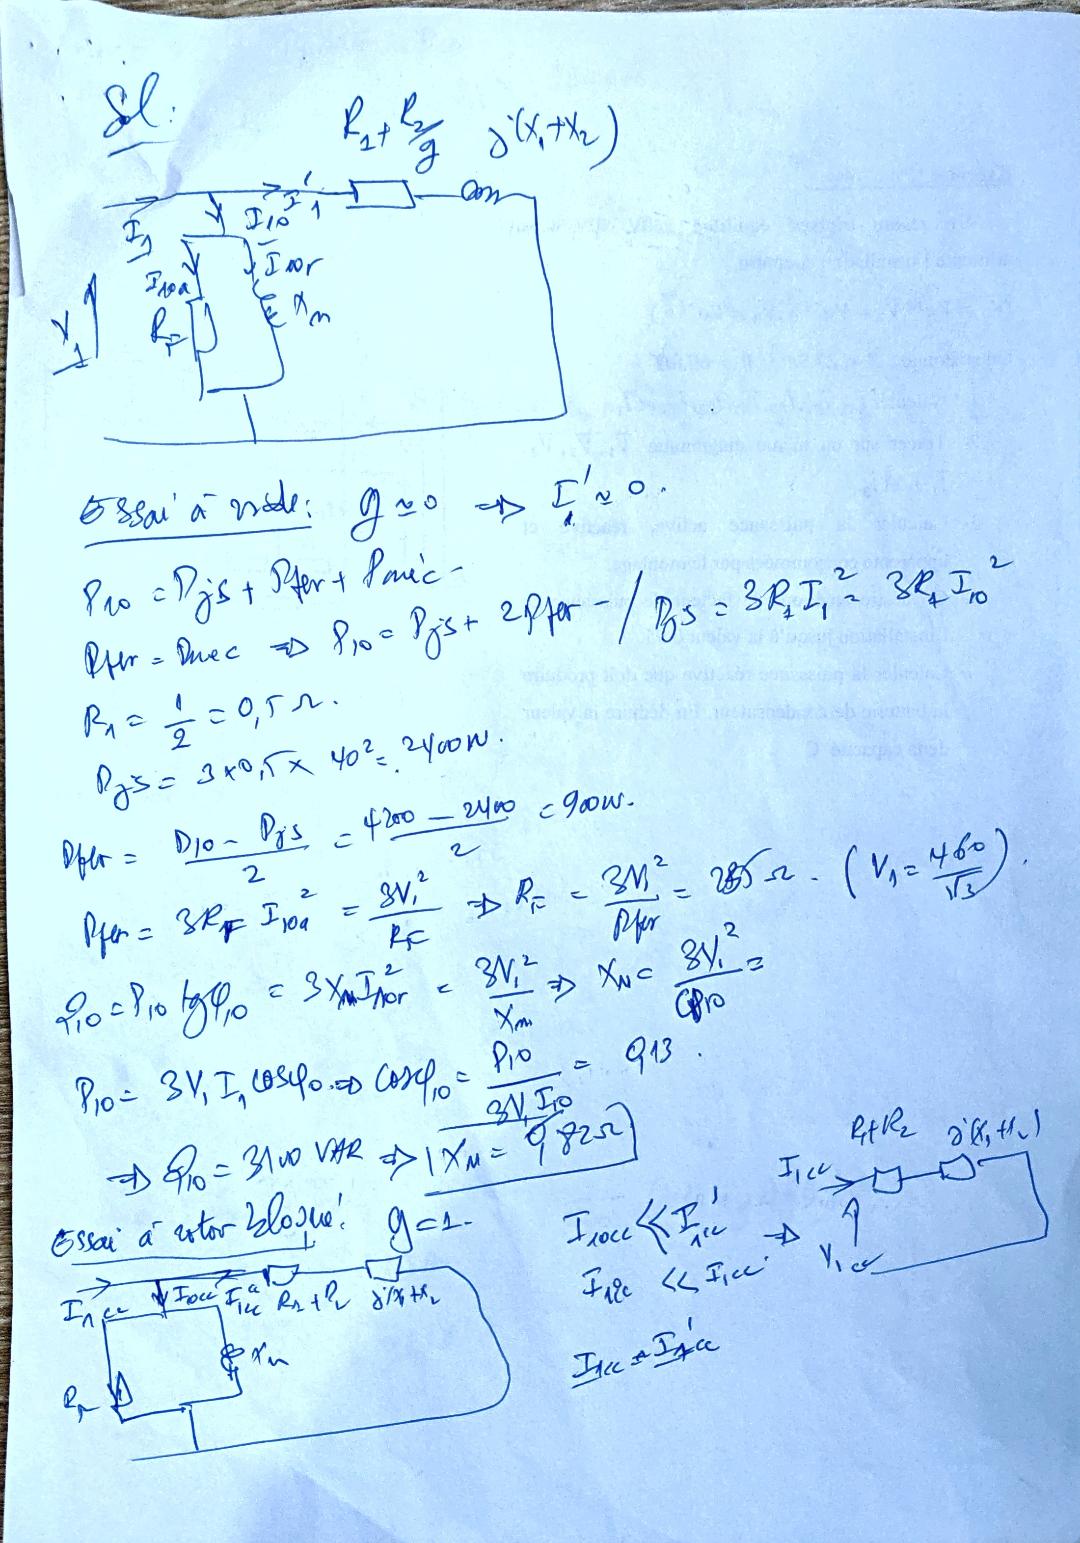 Sol:
R₁ + R₂/g   j(X₁+X₂)
I₁   I₁₀   I'₁
I₁₀a   I₁₀r
V₁   R_F   X_m
Essai à vide : g ≈ 0 ⇒ I'₁ ≈ 0.
P₁₀ = Pjs + Pfer + Pméc -
Pfer = Pmec ⇒ P₁₀ = Pjs + 2Pfer - / Pjs = 3R₁I₁² = 3R₁I₁₀²
R₁ = 1/2 = 0,5 Ω.
Pjs = 3×0,5× 40² = 2400W.
Pfer = (P₁₀ - Pjs)/2 = (4200 - 2400)/2 = 900w.
Pfer = 3R_F I₁₀a² = 3V₁²/R_F ⇒ R_F = 3V₁²/Pfer = Ω. (V₁ = 460/√3).
Q₁₀ = P₁₀ tgφ₁₀ = 3X_m I₁₀r² = 3V₁²/X_m ⇒ X_m = 3V₁²/Q₁₀ =
P₁₀ = 3V₁ I₁ cosφ₀ ⇒ cosφ₁₀ = P₁₀/3V₁I₁₀ = 0,13.
⇒ Q₁₀ = 3100 VAR ⇒ X_M = 9,82Ω
R₁+R₂   j(X₁+X₂)
I₁cc
V₁cc
Essai à rotor bloqué : g = 1.
I₁₀cc << I'₁cc ⇒
<< I₁cc
I₁cc   I₀cc   I'₁cc   R₁+R₂   j(X₁+X₂
X_m
I₁cc = I'₁cc